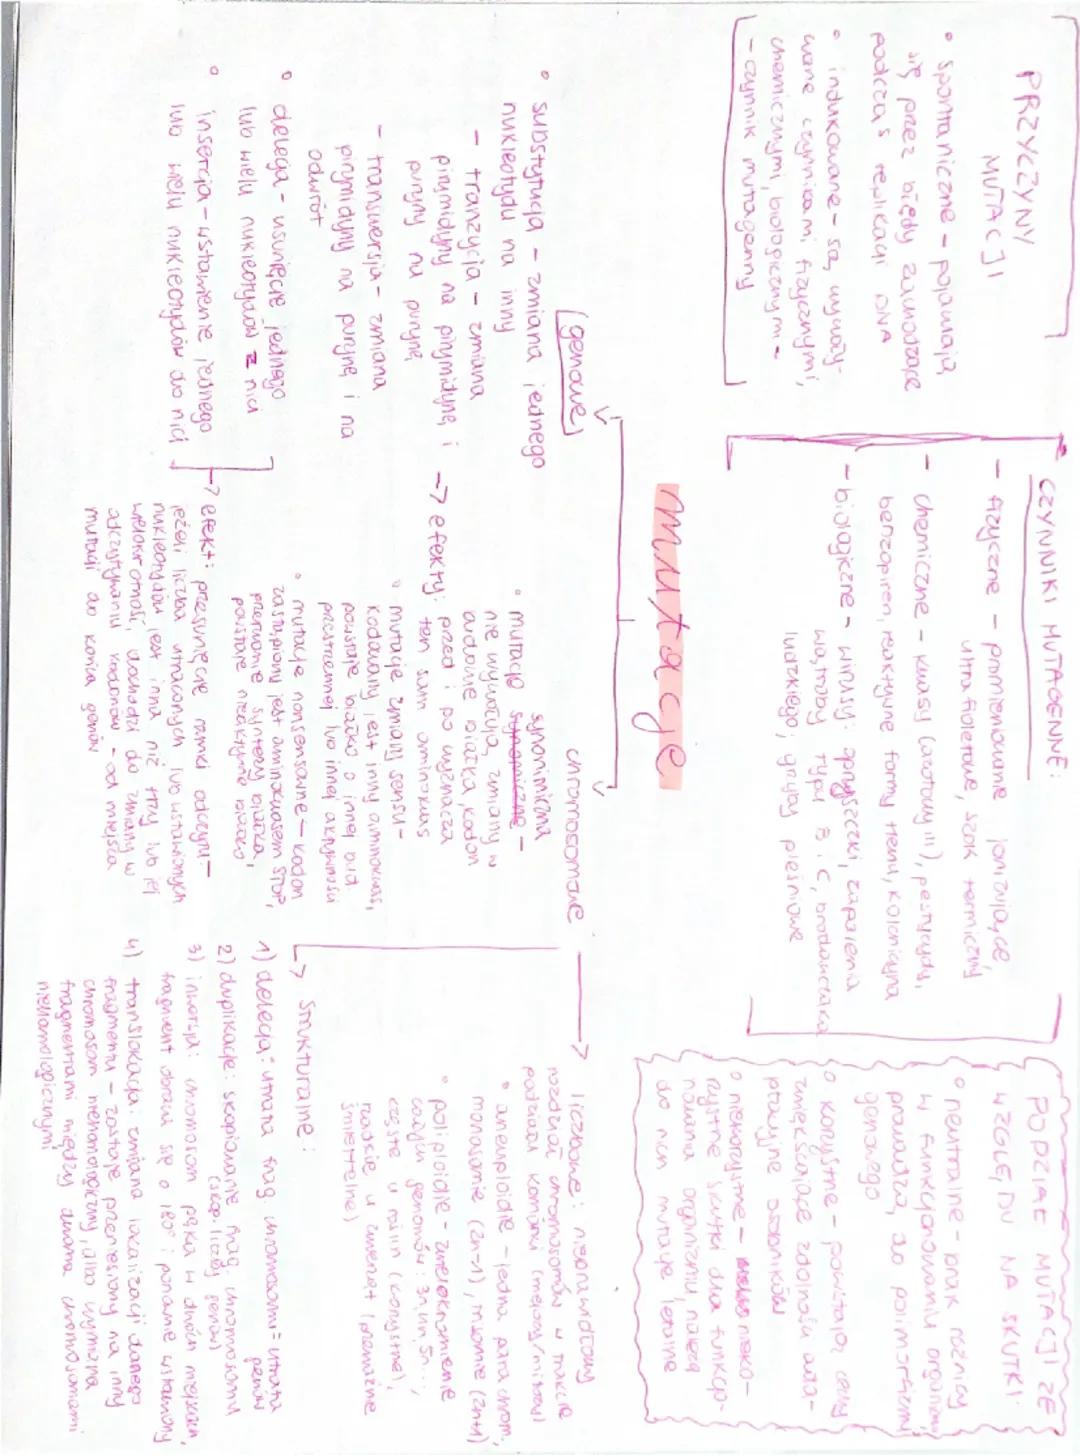 PRZYCZYNY
MUTACJI
• spontaniczne - pojawiają
się przez błędy zachodzące
podczas replikacji DNA
• indukowane - są wywoły-
wane czynnikami fizycznymi,
chemicznymi, biologicznym -
- czynnik mutagenny
CZYNNIKI MUTAGENNE:
- fizyczne - promieniowanie jonizujące,
ultrafioletowe, szok termiczny
- chemiczne - kwasy (azotowy III), pestycydy,
benzopiren, reaktywne formy tlenu, kolchicyna
- biologiczne - wirusy: opryszczki, zapalenia
wątroby typu B i C, brodawczaka
ludzkiego; grzyby pleśniowe
PODZIAŁ MUTACJI ZE
WZGLĘDU NA SKUTKI:
• neutralne - brak różnicy
w funkcjonowaniu organizmu,
prowadzą do polimorfizmu
genowego
• korzystne - powstają cechy
zwiększające zdolności adap-
tacyjne osobników
• niekorzystne - nieko-
rzystne skutki dla funkcjo-
nowania organizmu, należą
do nich mutacje letalne
mutacje
genowe
• substytucja - zmiana jednego
nukleotydu na inny
- tranzycja - zmiana
pirymidyny na pirymidynę i
puryny na purynę
- transwersja - zmiana
pirymidyny na purynę i na
odwrót
• delecja - usunięcie jednego
lub wielu nukleotydów z nici
• insercja - wstawienie jednego
lub wielu nukleotydów do nici
→ efekty:
• mutacje synonimiczne -
nie wywołują zmiany w
budowie białka, kodon
przed i po wyznacza
ten sam aminokwas
• mutacje zmiany sensu -
kodowany jest inny aminokwas,
powstaje białko o innej bud
przestrzennej lub innej aktywności
• mutacje nonsensowne - kodon
zastąpiony jest aminokwasem STOP,
przerwanie syntezy białka,
powstaje nieaktywne białko
→ efekt: przesunięcie ramki odczytu -
jeżeli liczba utraconych lub wstawionych
nukleotydów jest inna niż trzy lub jej
wielokrotność, dochodzi do zmiany w
odczytywaniu kodonów - od miejsca
mutacji do końca genów
chromosomowe
→ liczbowe: nieprawidłowy
rozdział chromosomów w trakcie
podziału komórki (mejozy/mitozy)
• aneuploidie - jedna para chrom,
monosomie (2n-1), trisomie (2n+1)
• poliploidie - zwielokrotnienie
całych genomów: 3n, 4n, 5n...,
częste u roślin (korzystne),
rzadkie u zwierząt (przeważnie
śmiertelne)
→ strukturalne:
1) delecja: utrata frag. chromosomu = utrata
genów
2) duplikacje: skopiowanie frag. chromosomu
(skop. liczby genów)
3) inwersja: chromosom pęka w dwóch miejscach,
fragment obraca się o 180° i ponownie wstawiony
4) translokacja: zmiana lokalizacji danego
fragmentu - zostaje przeniesiony na inny
chromosom niehomologiczny, albo wymiana
fragmentami między dwoma chromosomami
niehomologicznymi